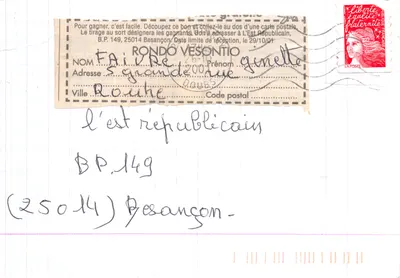 Pour gagner, c'est facile. Découpez ce bon et collez-le au dos d'une carte postale.
Le tirage au sort désignera les gagnants. Bons à adresser à L'Est Républicain,
B.P. 149, 25014 Besançon. Date limite de réception, le 29/10/01
RONDO VESONTIO
NOM FAIVRE Prénom ginette
Adresse 5 grande rue
Ville Rouhe Code postal
liberté
égalité
fraternité
l'est républicain
BP.149
(25014) Besançon-